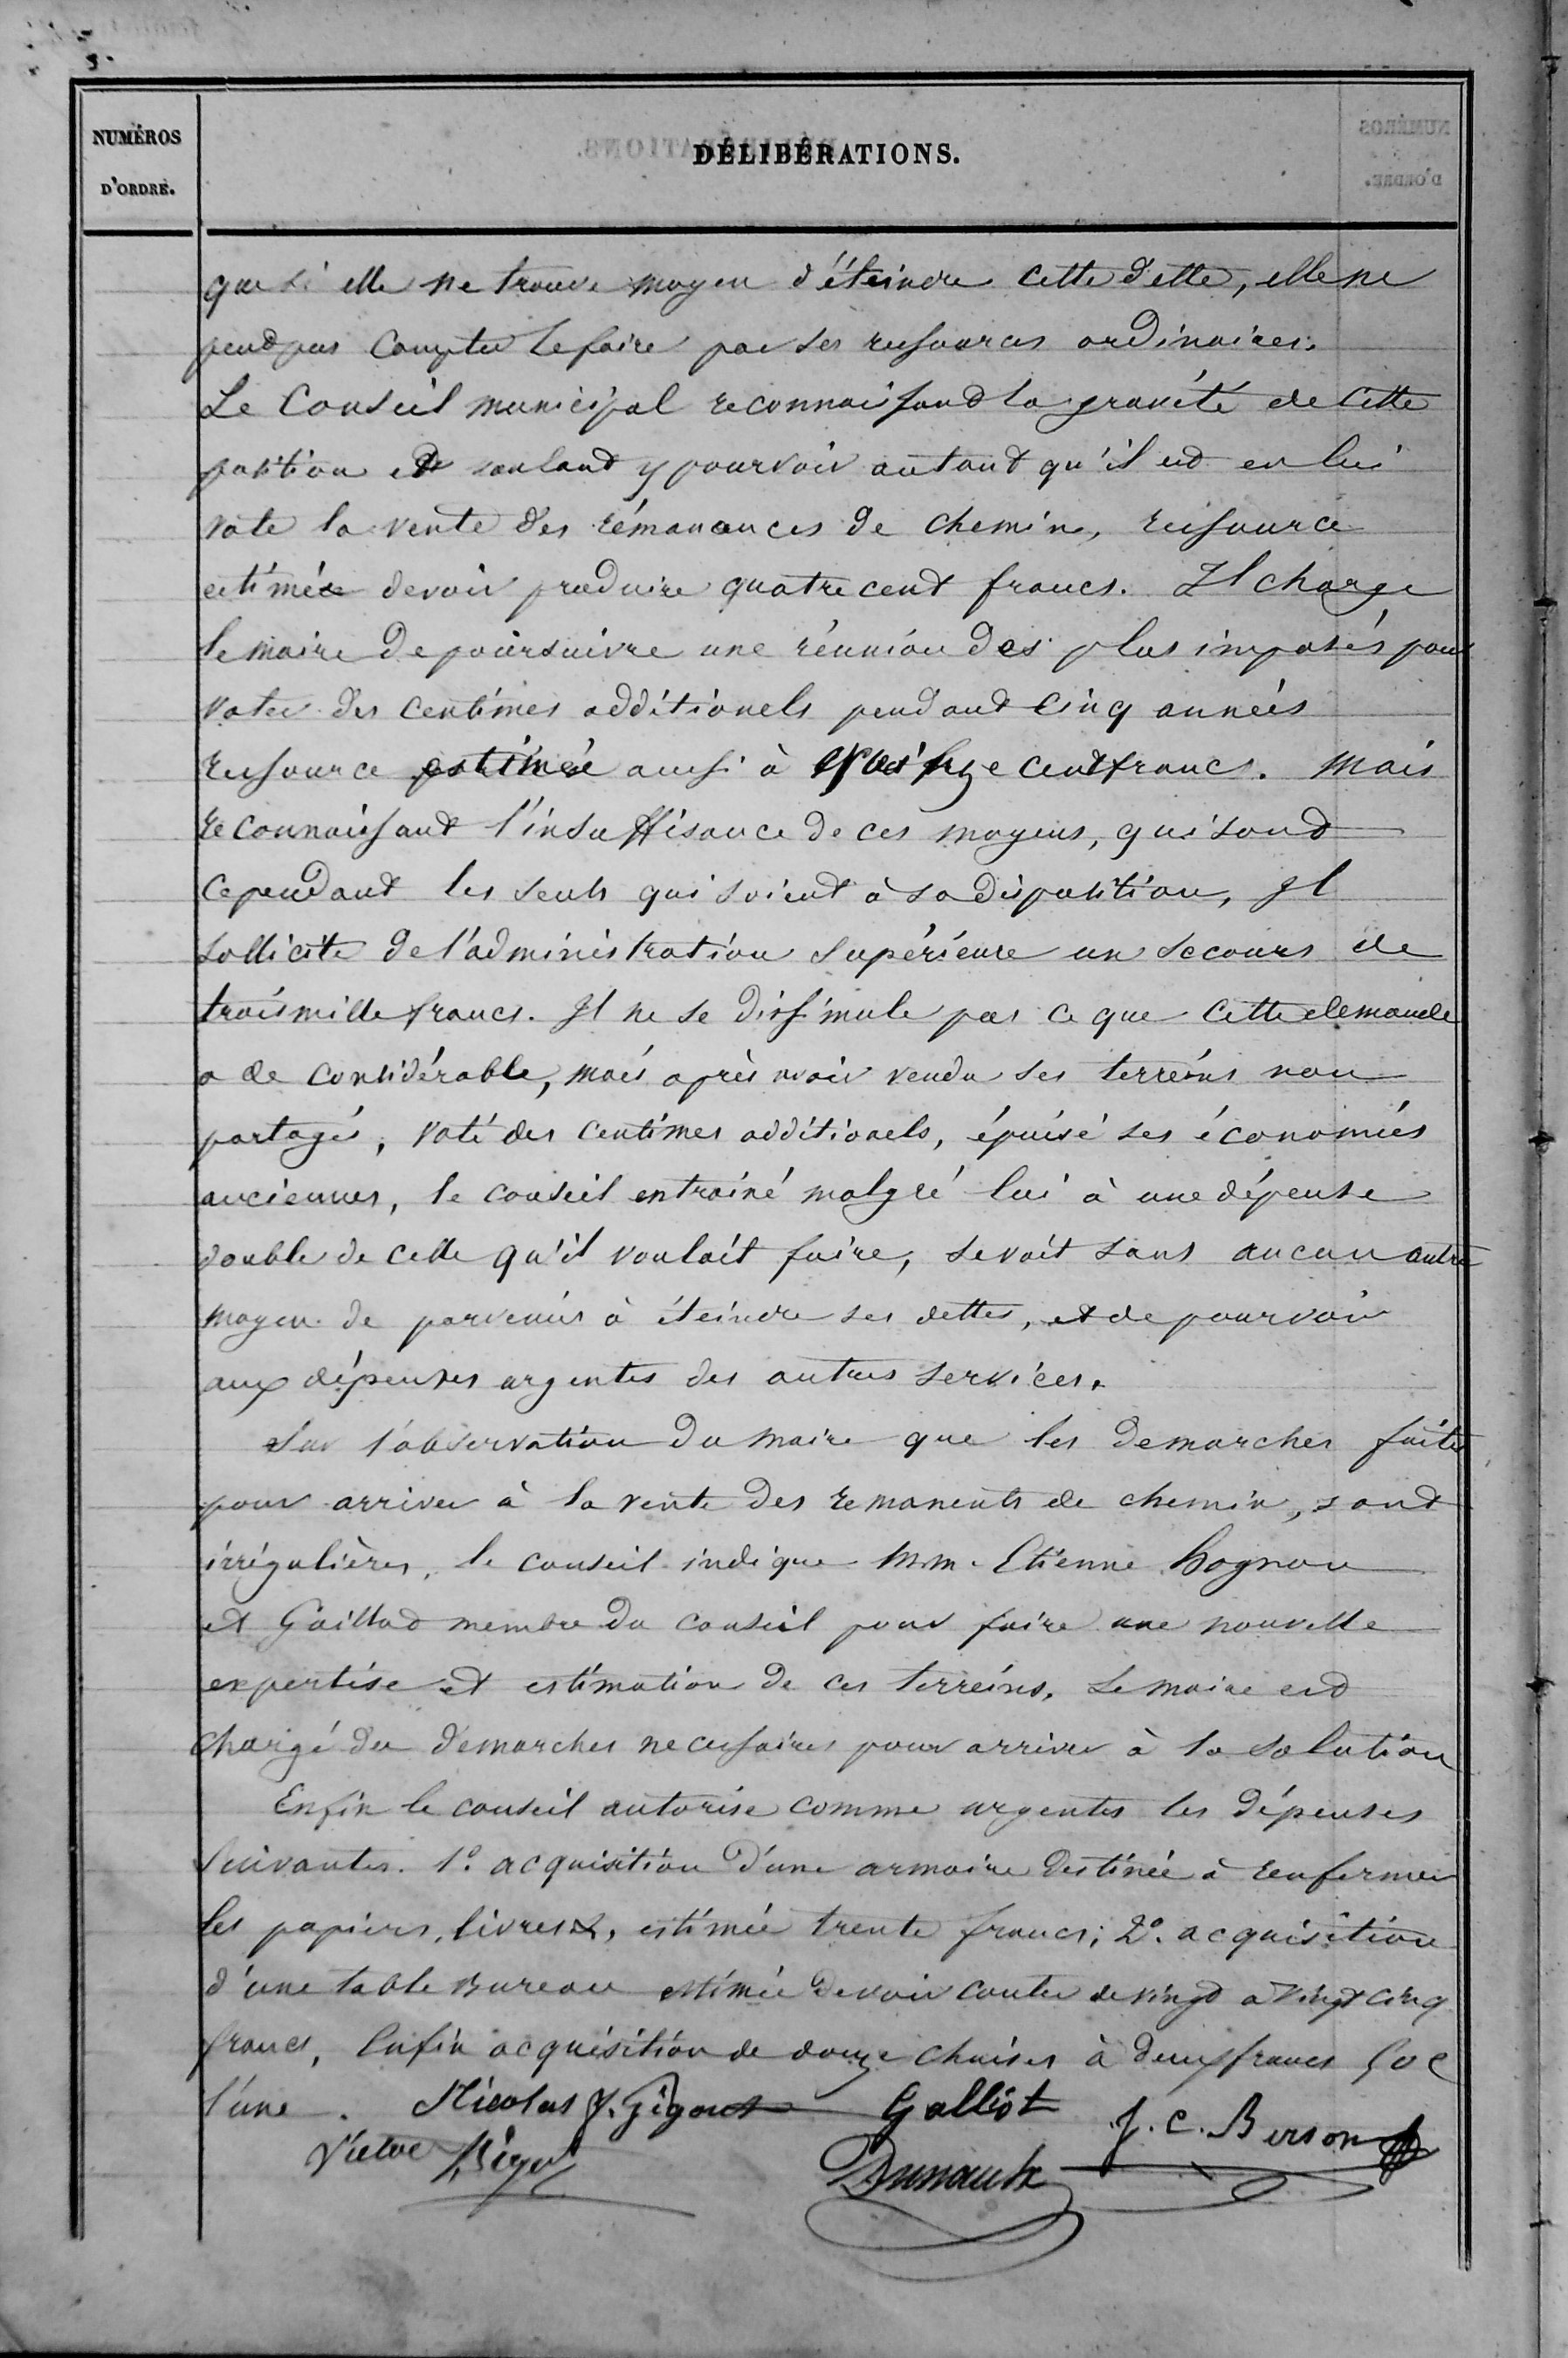 NUMÉROS
D'ORDRE.
DÉLIBÉRATIONS.
que si elle ne trouve moyen d'éteindre cette dette, elle ne
peut pas compter le faire par ses ressources ordinaires.
Le Conseil municipal reconnaissant la gravité de cette
position et voulant y pourvoir autant qu'il est en lui
vote la vente des rémanances de chemin, ressource
estimée devoir produire quatre cent francs. Il charge
le maire de poursuivre une réunion des plus imposés pour
voter des centimes additionels pendant cinq années
ressource estimée aussi à cent francs. Mais
reconnaissant l'insuffisance de ces moyens, qui sont
cependant les seuls qui soient à sa disposition, Il
sollicite de l'administration supérieure un secours de
trois mille francs. Il ne se dissimule pas ce que cette demande
a de considérable, mais après avoir vendu ses terreins non
partagés, voté des centimes additionels, épuisé ses économies
anciennes, le conseil entrainé malgré lui à une dépense
double de celle qu'il voulait faire, se voit sans aucun autre
moyen de parvenir à éteindre ses dettes, et de pourvoir
aux dépenses urgentes des autres services.
Sur l'observation du maire que les demarches faites
pour arriver à la vente des remanents de chemin, sont
irrégulières, le conseil indique M.M. Etienne Hognon
et Gaillad membre du conseil pour faire une nouvelle
expertise et estimation de ces terreins. Le maire est
chargé des demarches necessaires pour arriver à la solution
Enfin le conseil autorise comme urgentes les dépenses
suivantes. 1º. acquisition d'une armoire destinée à renfermer
les papiers, livres &, estimée trente francs; 2º. acquisition
d'une table bureau estimée devoir couter de vingt a vingt cinq
francs, Enfin acquisition de douze chaises à deux francs 50 c
l'une. Nicolas J. Gigout Galliot J. C. Berson
Victor Bigot Dunault